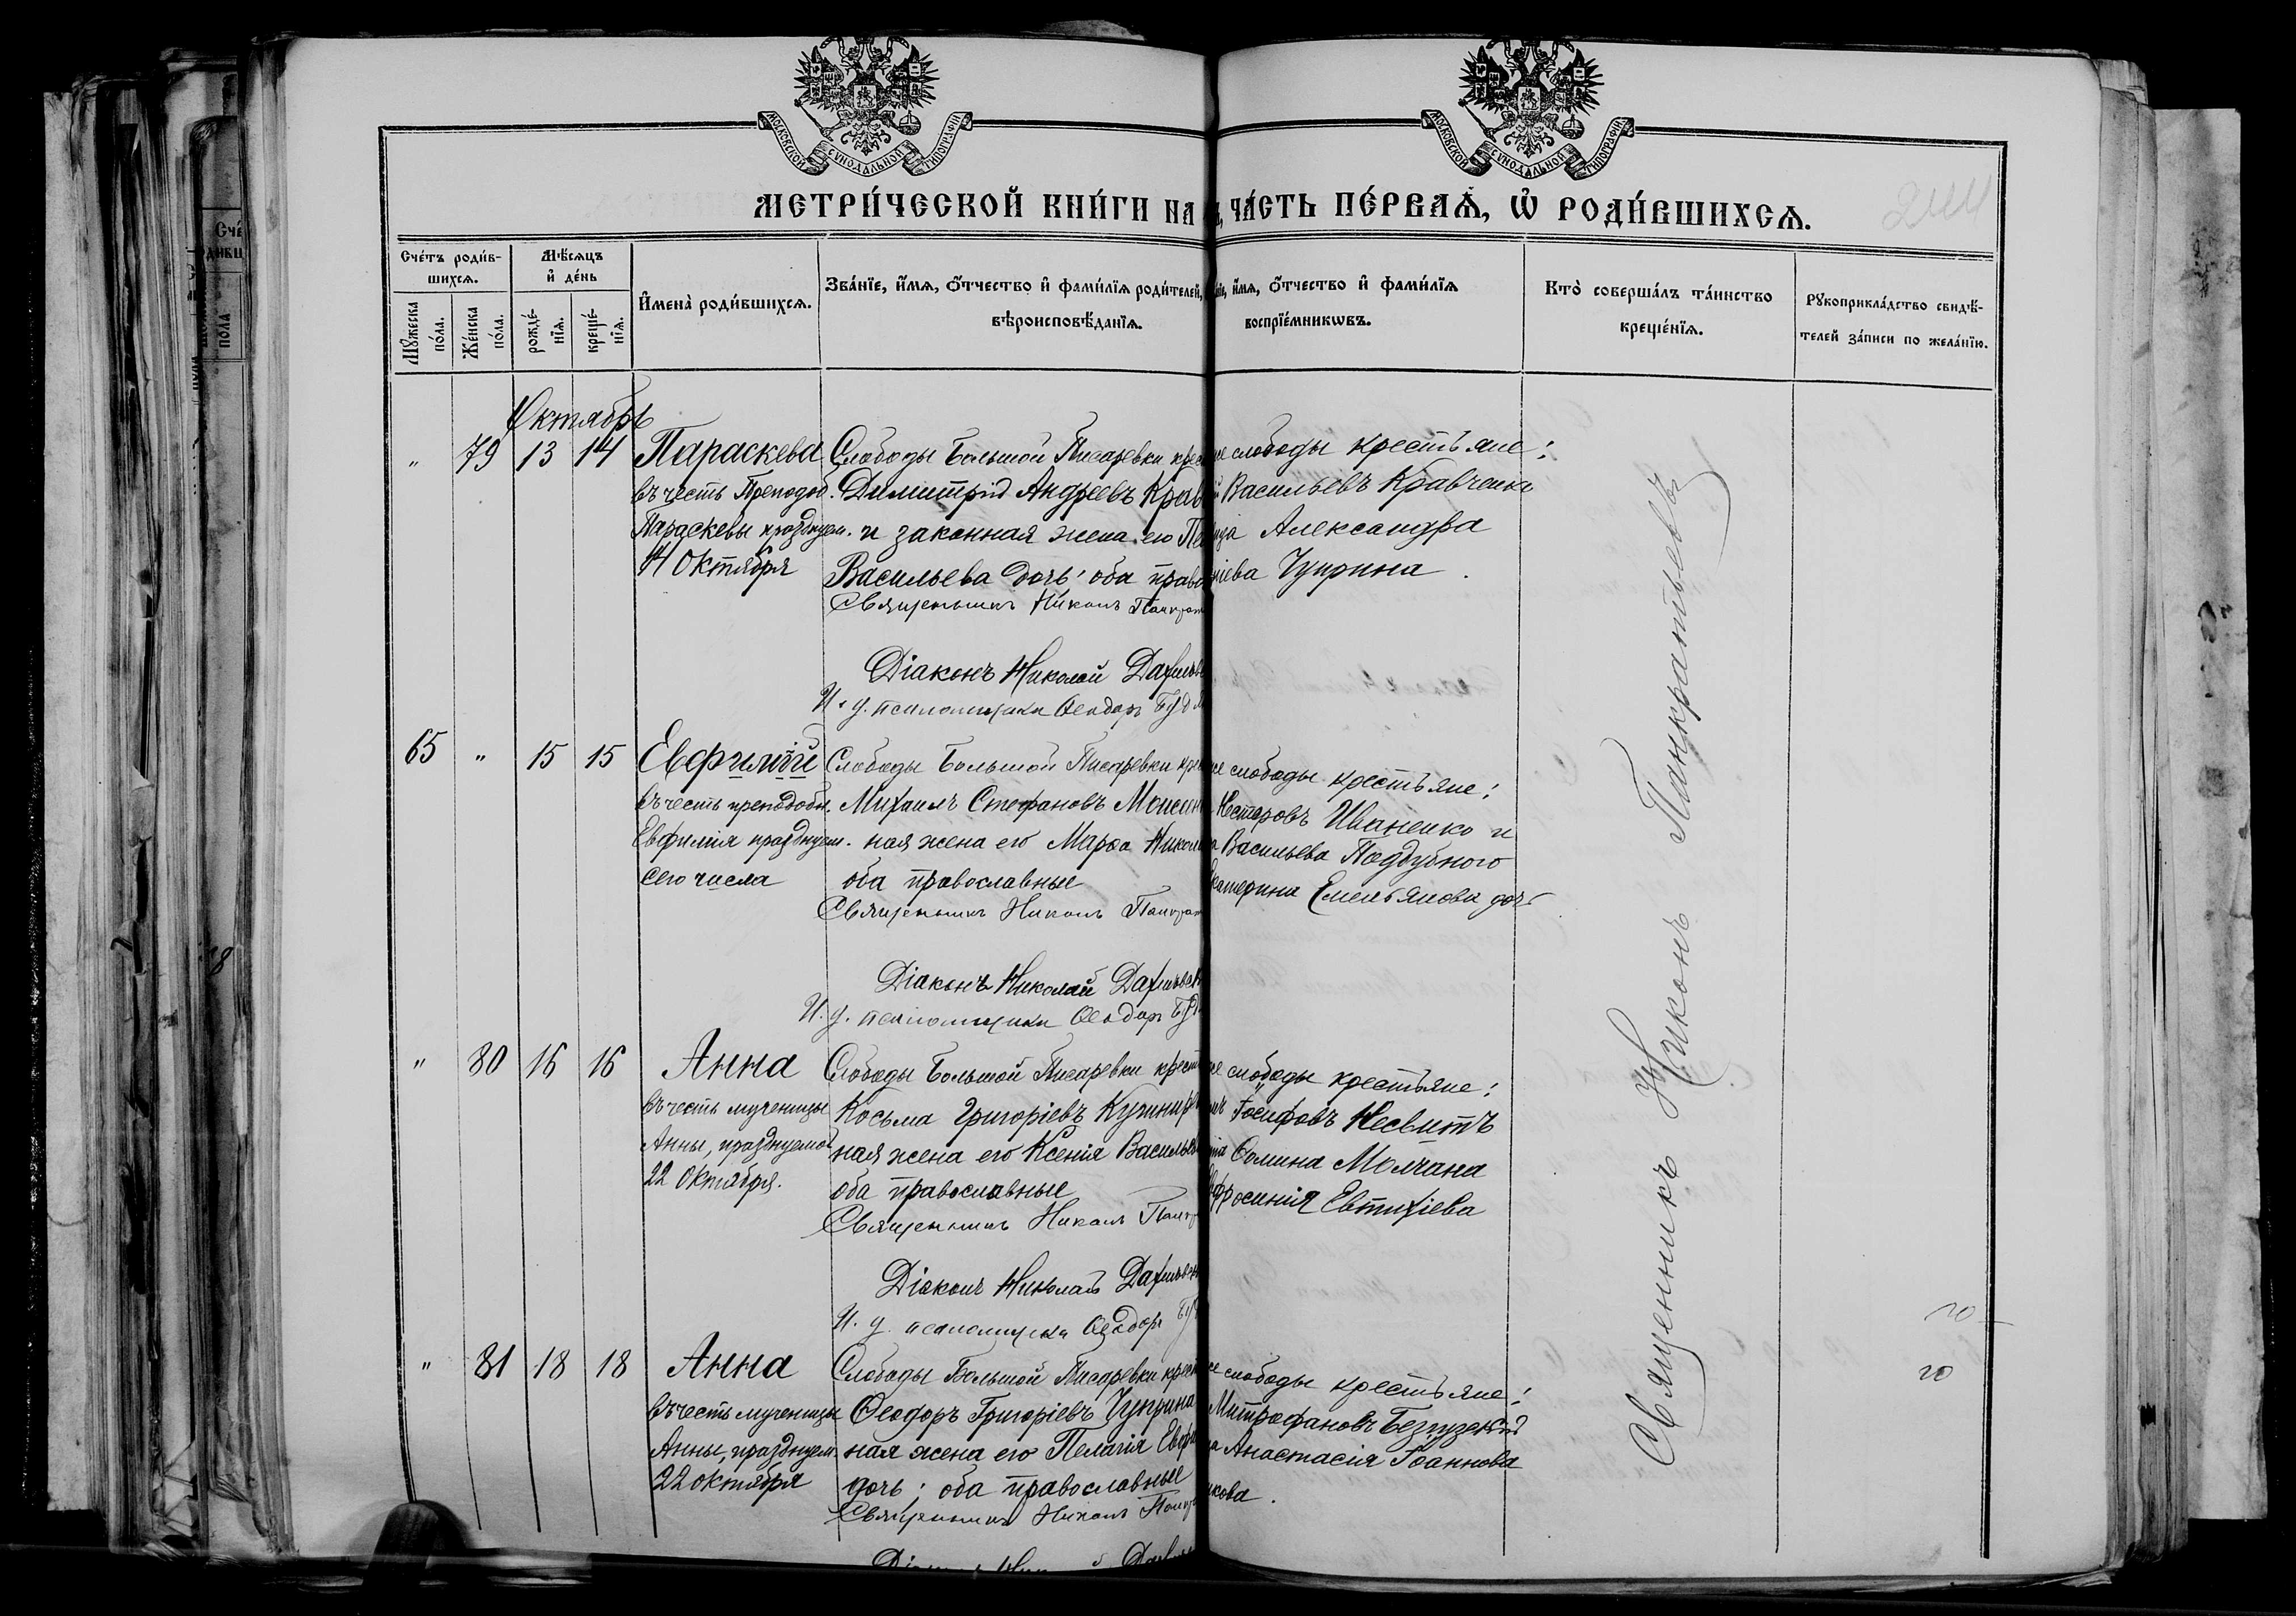 МОСКОВСКОЙ СУНОДАЛЬНОЙ ТИПОГРАФІИ
МОСКОВСКОЙ СУНОДАЛЬНОЙ ТИПОГРАФІИ
МЕТРИ́ЧЕСКОЙ КНИ́ГИ НА
ЧА́СТЬ ПЕ́РВАѦ, Ѡ РОДИ́ВШИХСѦ.
Сче́тъ роди́в-
шихсѧ.
Мꙋ́жеска по́ла.
Же́нска по́ла.
Мѣ́сѧцъ
и҆ де́нь
рожде́-
нїѧ.
креще́-
нїѧ.
И҆мена̀ роди́вшихсѧ.
Зва́нїе, и҆́мѧ, ѻ҆́тчество и҆ фами́лїѧ роди́телей,
вѣроисповѣ́данїѧ.
и҆́мѧ, ѻ҆́тчество и҆ фами́лїѧ
воспрїе́мникѡвъ.
Кто̀ соверша́лъ та́инство
креще́нїѧ.
Рꙋкоприкла́дство свидѣ́-
телей за́писи по жела́нїю.
Октябрь
" 79 13 14 Параскева
въ честь Преподоб.
Параскевы празднуем.
14 Октября
Слободы Большой Писаревки крес
Димитрій Андреевъ Крав
и законная жена его Пе
Васильева дочь; оба право
Священникъ Никонъ Панкрат
Діаконъ Николай
И. д. псаломщика Ѳеодоръ
слободы крестьяне:
Васильевъ Кравченко
Александра
Чуприна
65 " 15 15 Евфимій
въ честь преподобн.
Евфимія празднуем.
сего числа
Слободы Большой Писаревки кре
Михаилъ Стефановъ
ная жена его Марѳа Никол
оба православные
Священникъ Никонъ Панкрат
Діаконъ Николай
И. д. псаломщика Ѳеодоръ
слободы крестьяне:
Несторовъ Иваненко и
Васильева Поддубного
Екатерина Емельянова дочь
" 80 16 16 Анна
въ честь мученицы
Анны, празднуемой
22 Октября.
Слободы Большой Писаревки крест
Косьма Григоріевъ
ная жена его Ксенія Василье
оба православные
Священникъ Никонъ Панкр
Діаконъ Николай
И. д. псаломщика Ѳеодоръ
слободы крестьяне:
Іосифовъ Несвитъ
Ѳомина Молчана
Ефросинія Евтихіева
" 81 18 18 Анна
въ честь мученицы
Анны, празднуем.
22 октября
Слободы Большой Писаревки крест
Ѳеодоръ Григоріевъ Чуприна
ная жена его Пелагія Евфи
дочь; оба православные
Священникъ Никонъ Панкр
слободы крестьяне:
Митрофановъ
Анастасія Іоаннова
кова.
Священникъ Никонъ Панкратьевъ
20